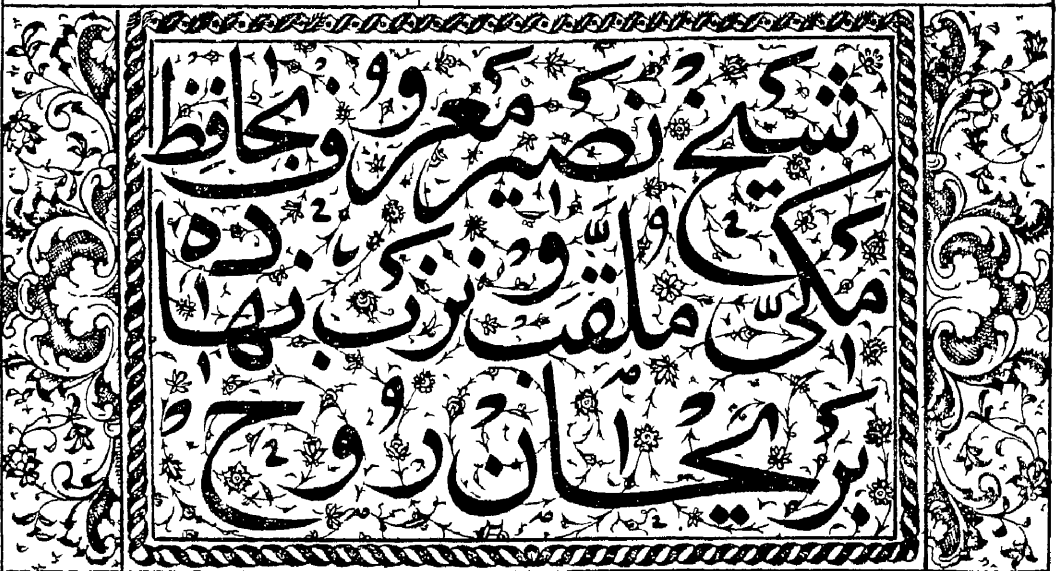 شیخ نصیر معروف بحافظ
مکیّ ملقّب و نهاده
بریحان روح